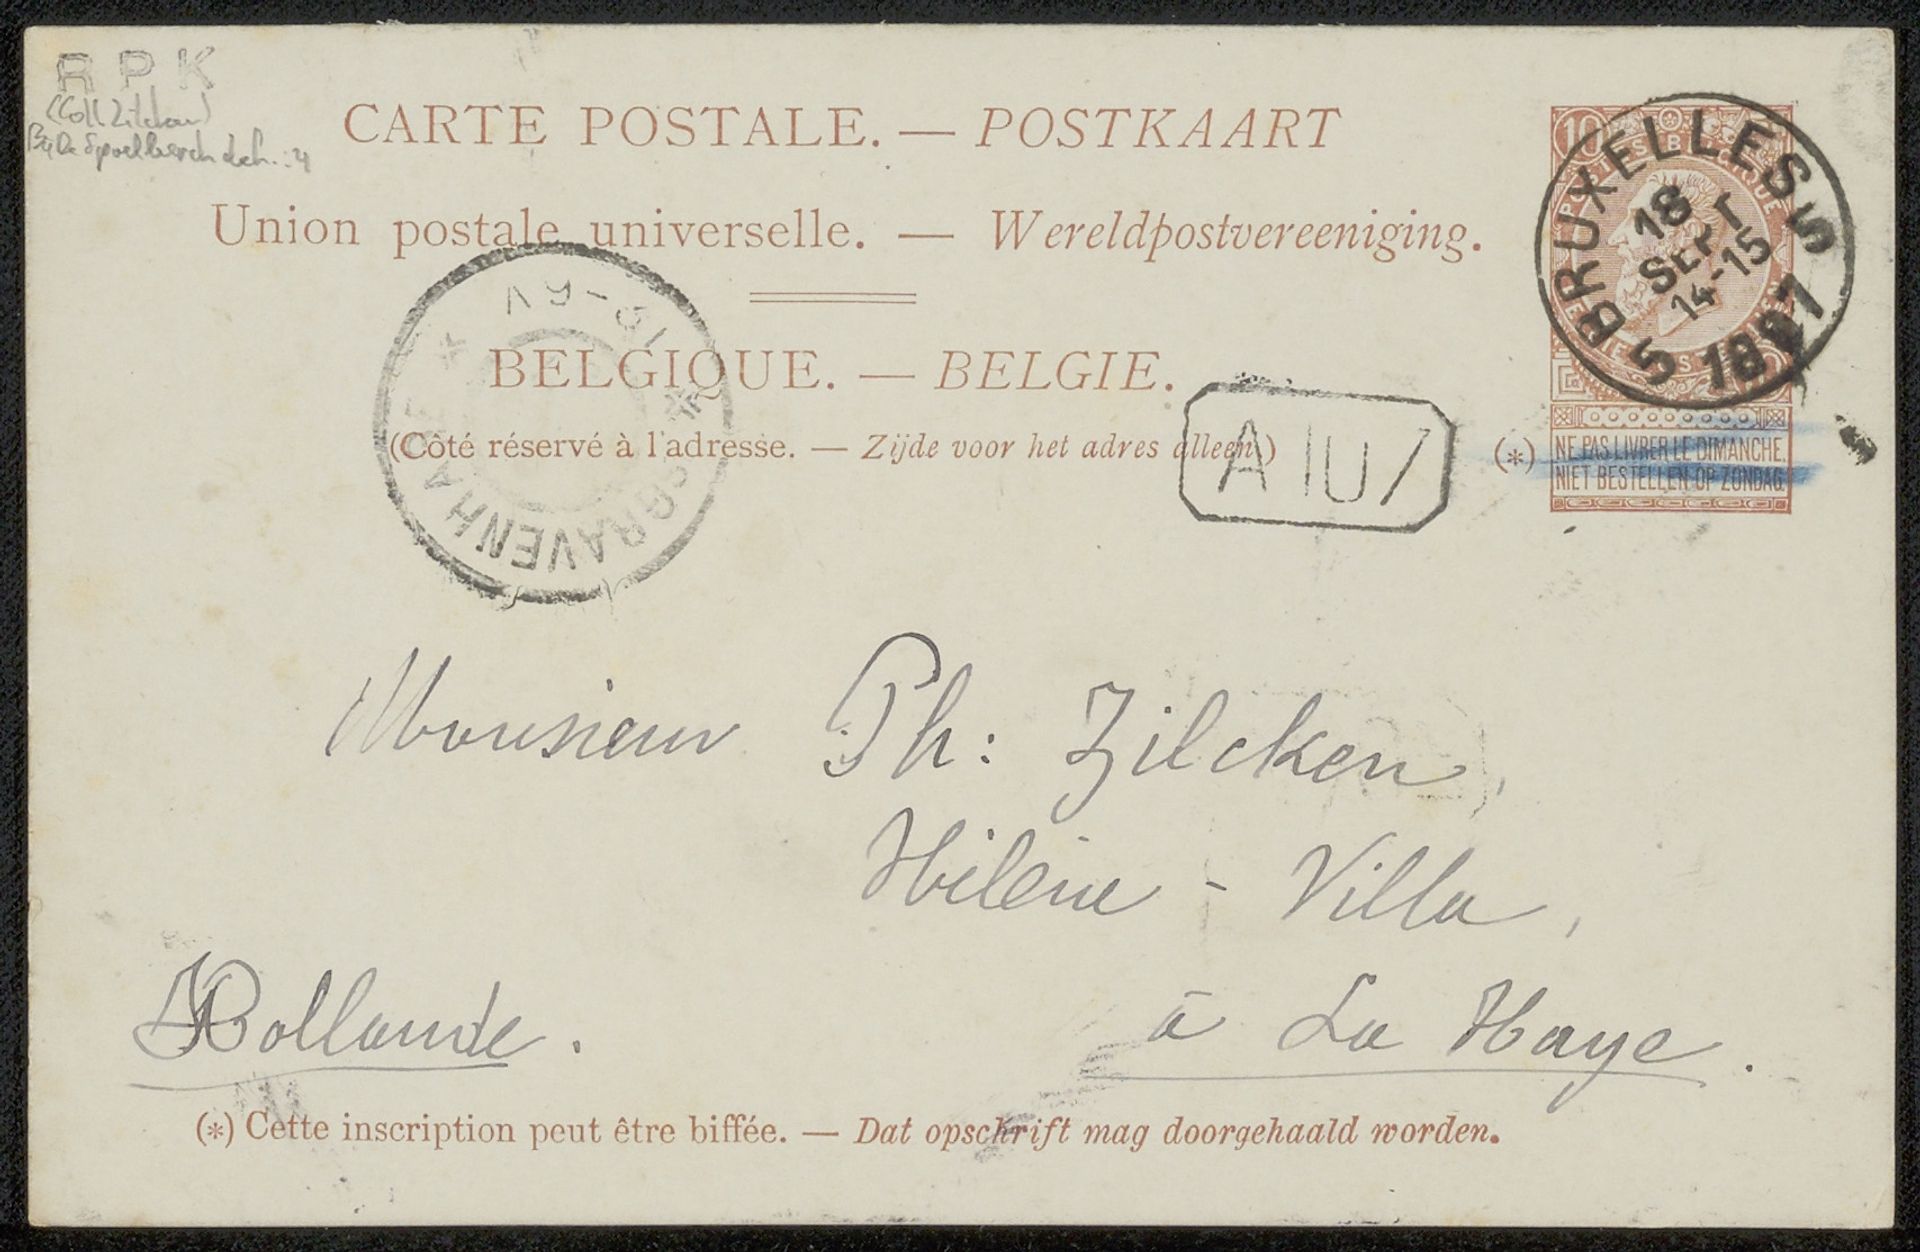 R P K
(Coll Zilcken)
CARTE POSTALE. — POSTKAART
Union postale universelle. — Wereldpostvereeniging.
BELGIQUE. — BELGIE.
(Côté réservé à l'adresse. — Zijde voor het adres alleen.)
10
POSTES BELGIQUE
BRUXELLES 5
18 SEPT
14-15
1897
5
(*)
NE PAS LIVRER LE DIMANCHE.
NIET BESTELLEN OP ZONDAG.
'S GRAVENHAGE
A 107
Monsieur Ph: Zilcken,
Hélène - Villa,
à La Haye.
Hollande.
(*) Cette inscription peut être biffée. — Dat opschrift mag doorgehaald worden.